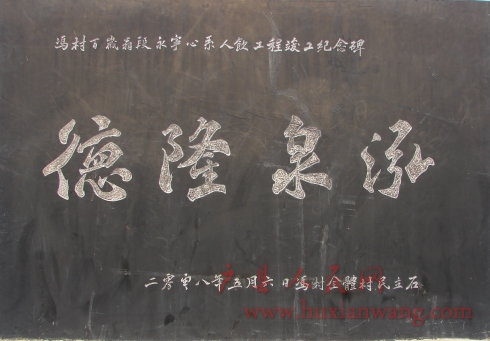 冯村百歲翁段永宁心系人飲工程竣工纪念碑
德隆泉泓
二零零八年五月六日冯村全體村民立石
www.huxianwang.com